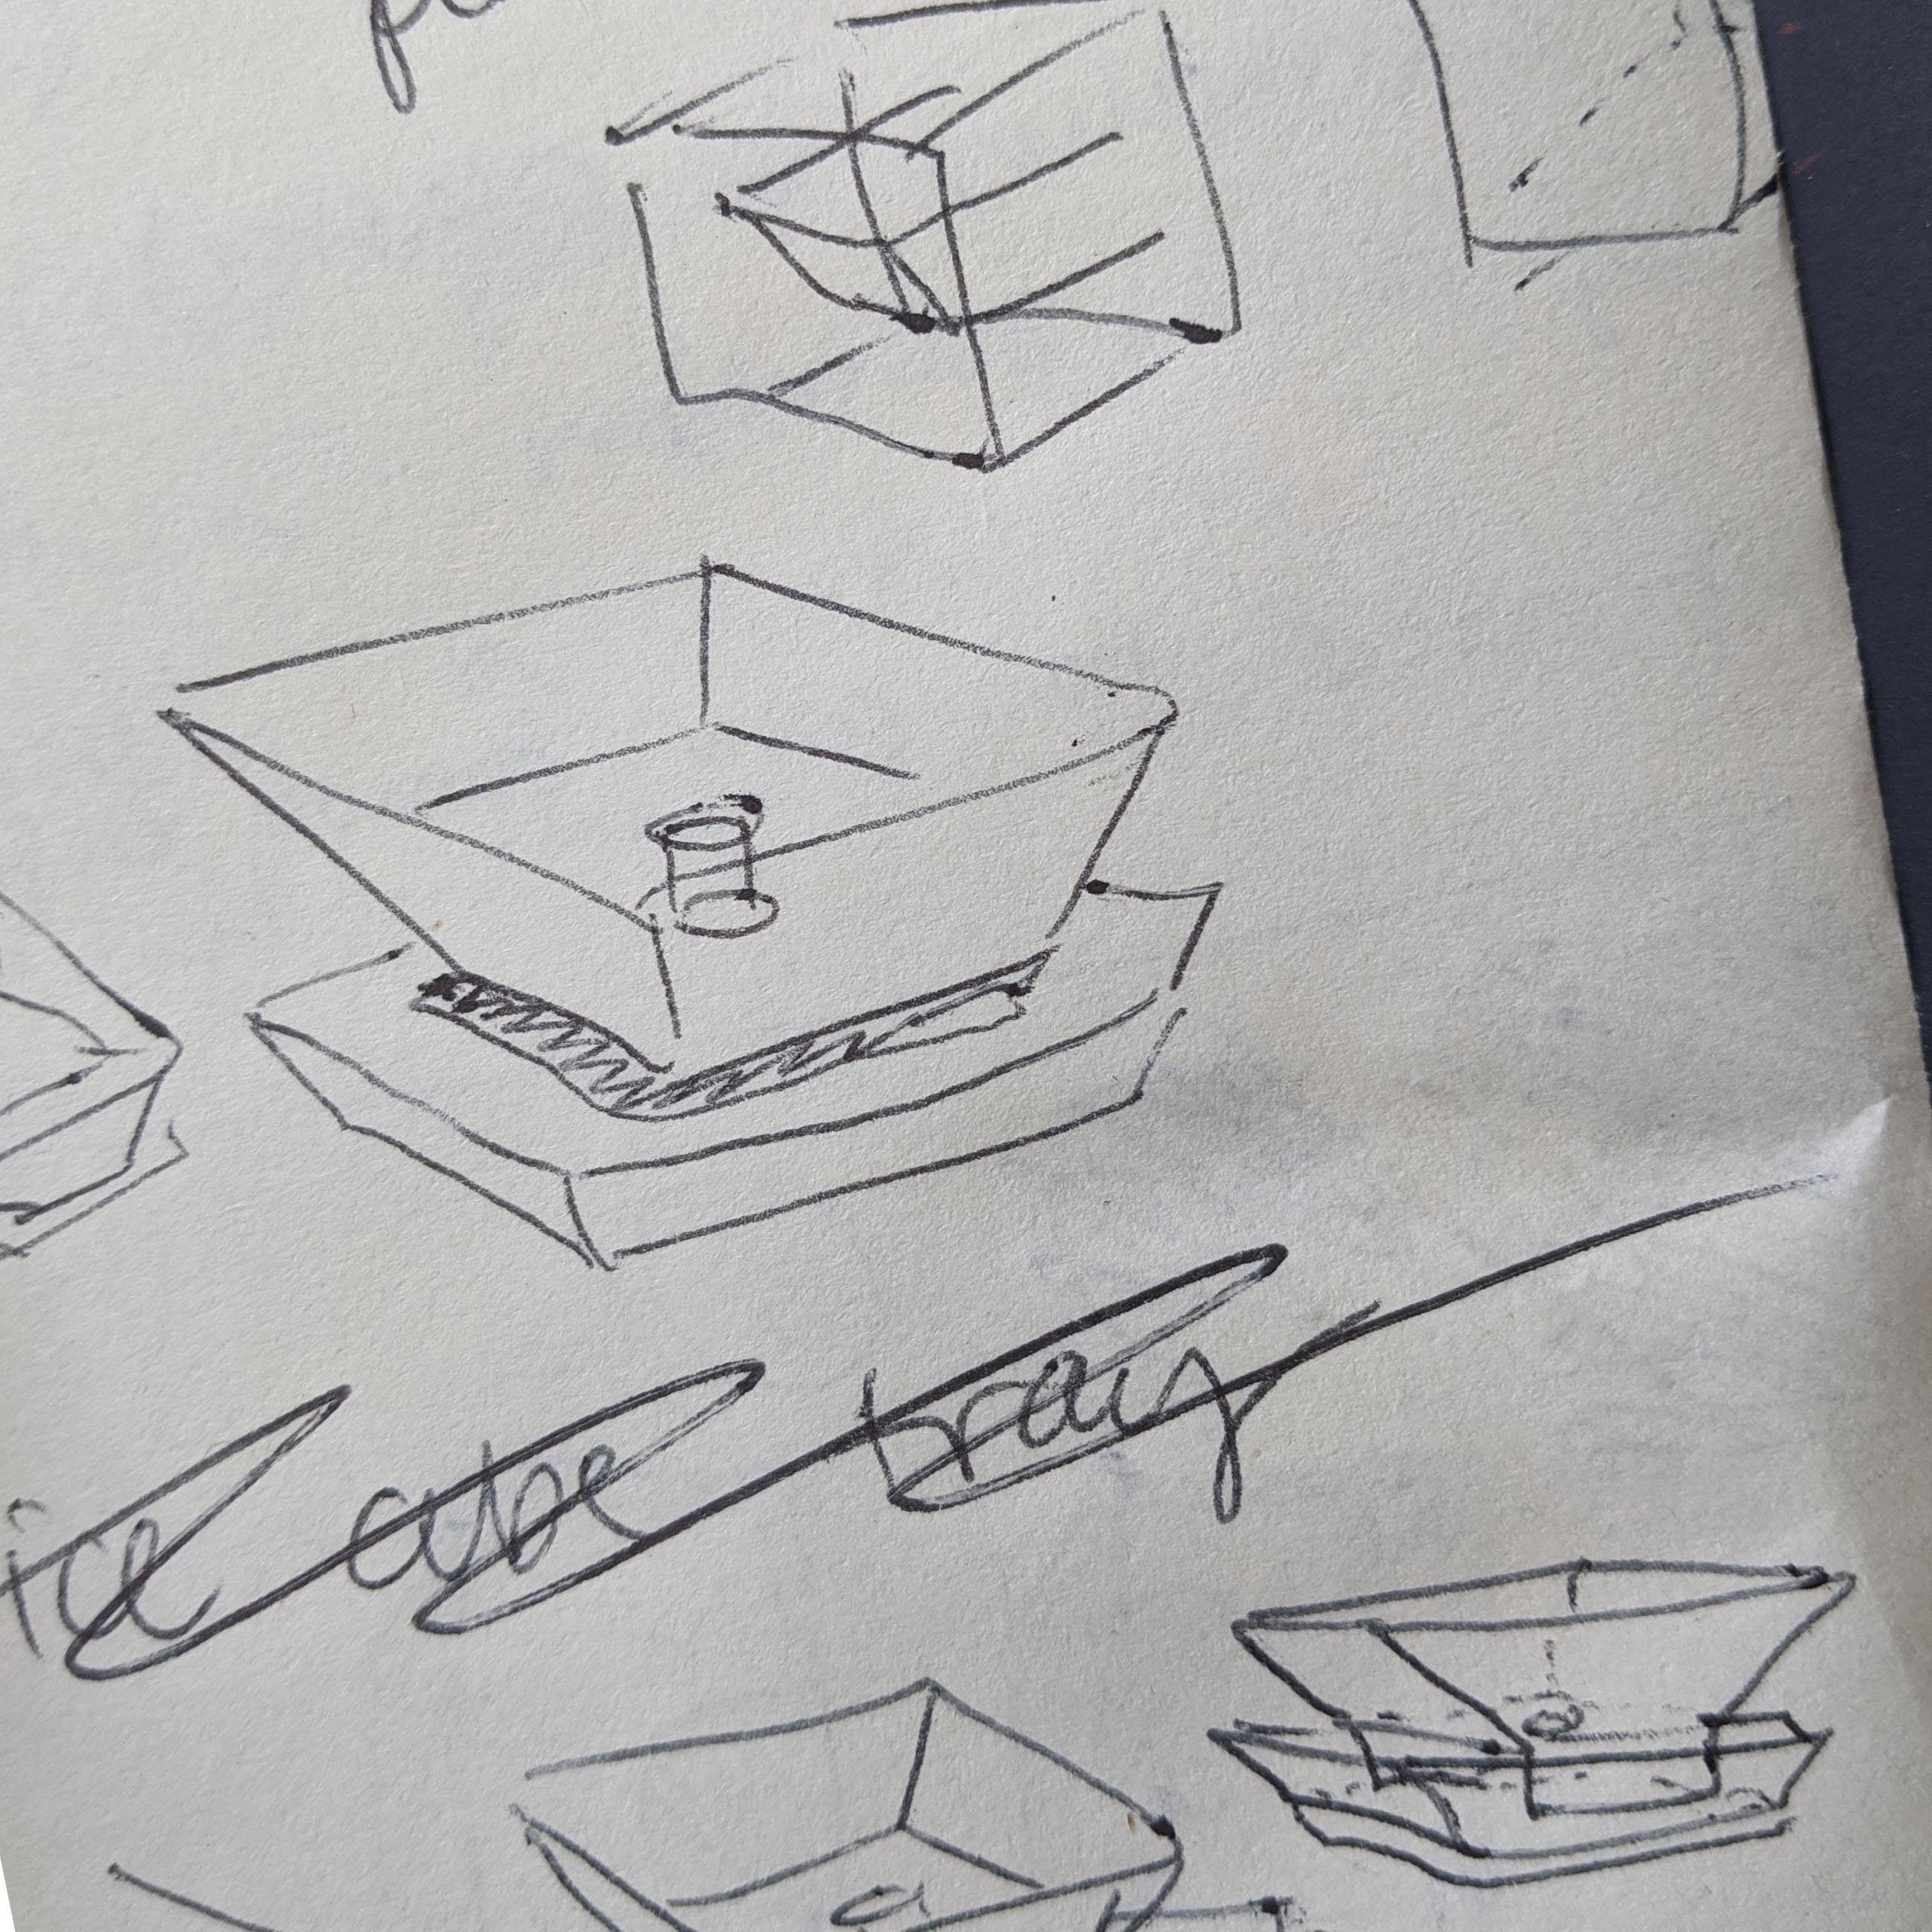 ice cube tray